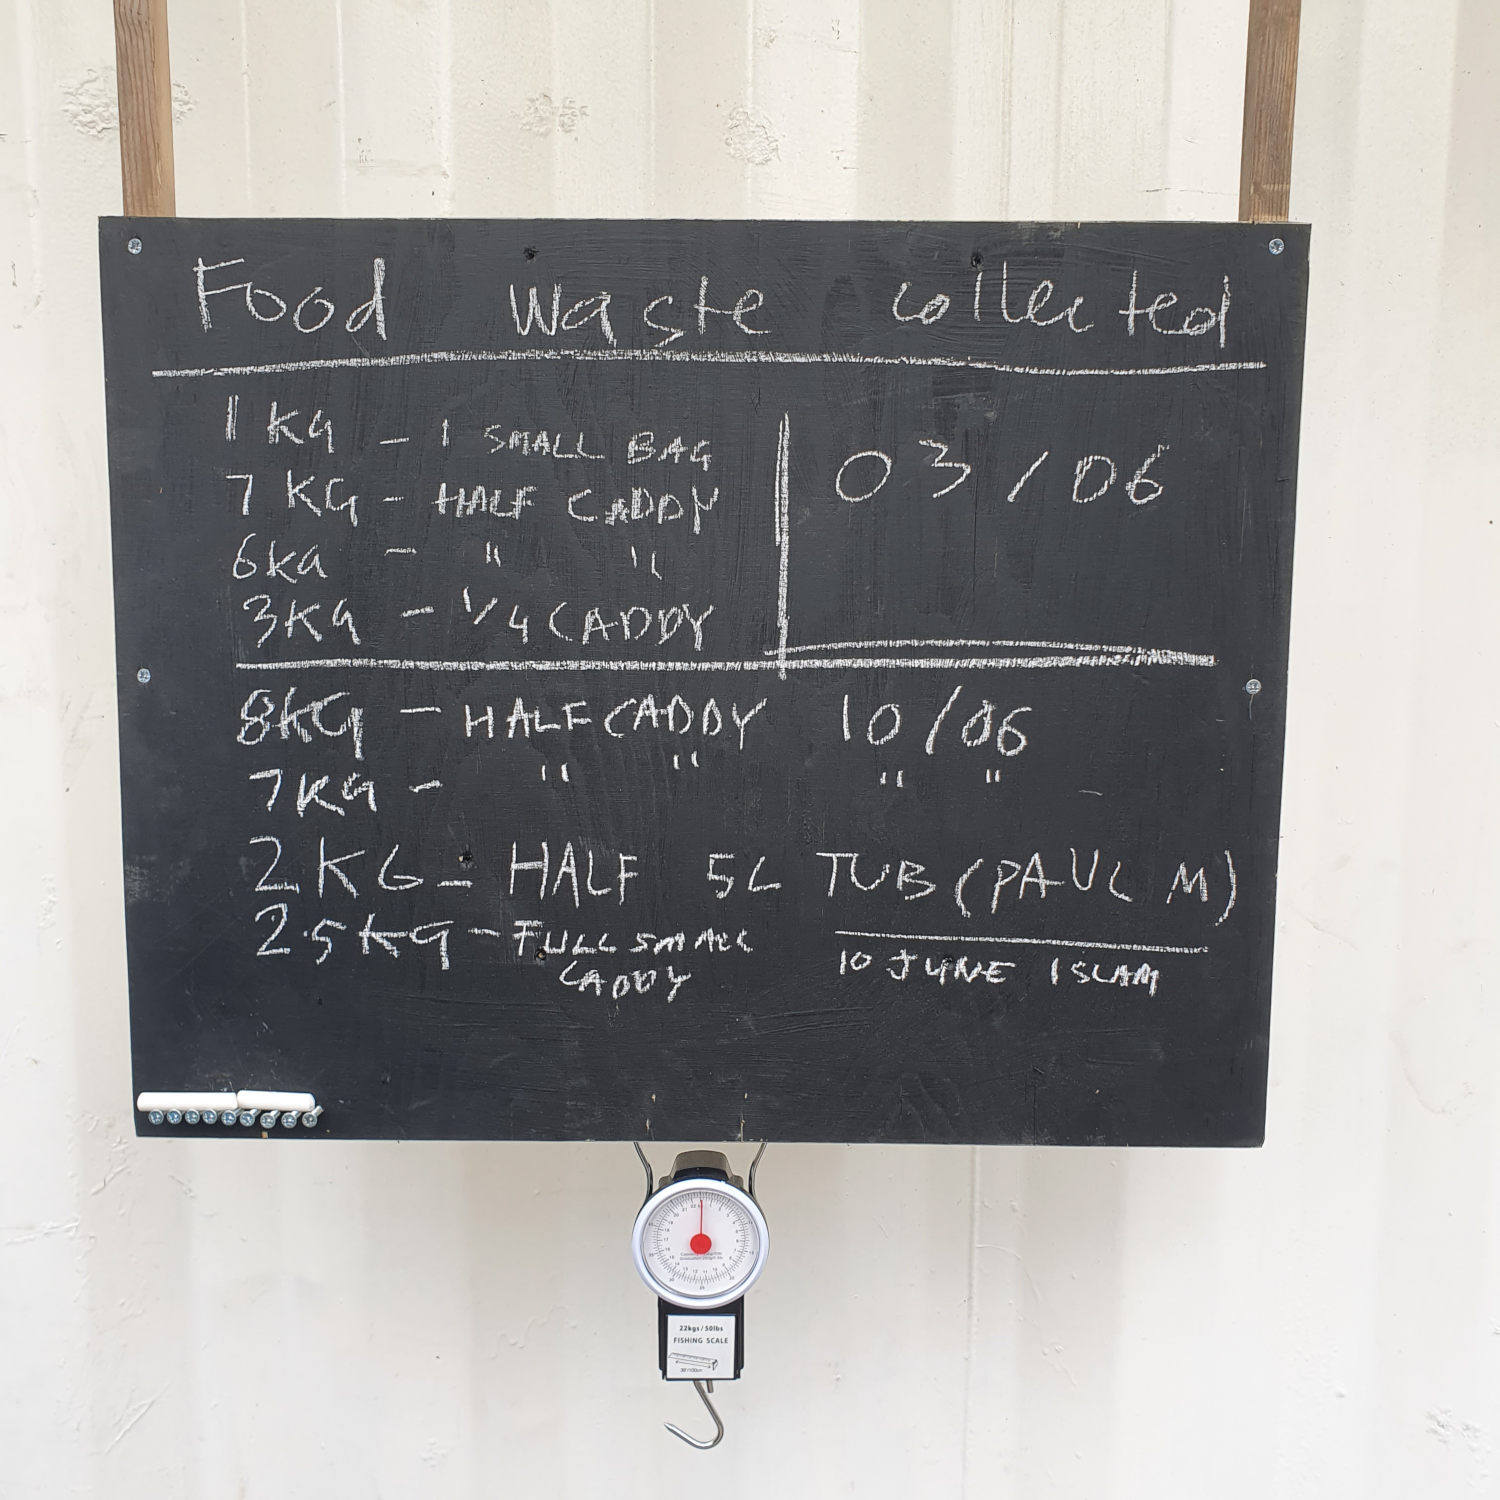 Food waste collected
1 KG - 1 SMALL BAG
7 KG - HALF CADDY
6KG - " "
3KG - 1/4 CADDY
03/06
8KG - HALF CADDY 10/06
7KG - " " " "
2KG - HALF 5L TUB (PAUL M)
2.5KG - FULL SMALL CADDY
10 JUNE ISLAM
22kgs/50lbs
FISHING SCALE